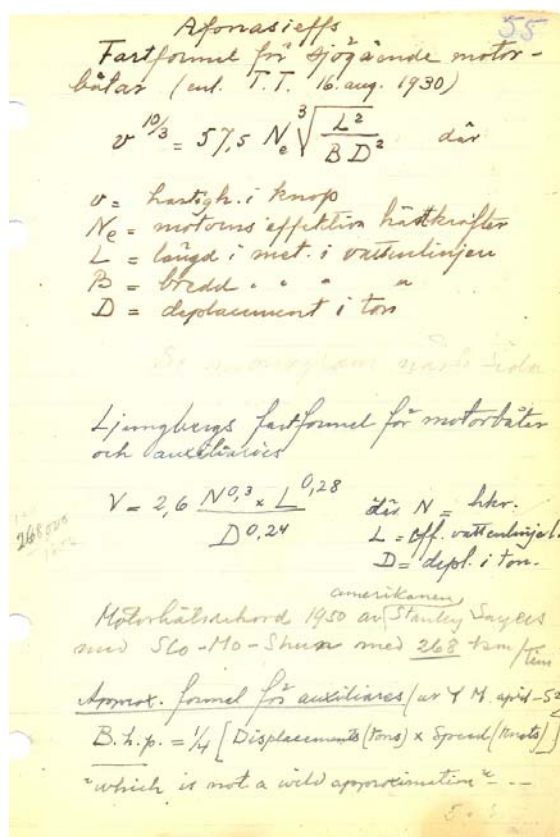 55
Afonasieffs
Fartformel för sjögående motor-
båtar (enl. T.T. 16. aug. 1930)
v^10/3 = 57,5 Ne ∛(L²/BD²) där
v = hastigh. i knop
Ne = motorns effektiva hästkrafter
L = längd i met. i vattenlinjen
B = bredd " " " "
D = deplacement i ton
Se nomogram nästa sida
Ljungbergs fartformel för motorbåtar
och auxiliaries
V = 2,6 N^0,3 x L^0,28 / D^0,24 där N = hkr.
L = eff. vattenlinjel.
D = depl. i ton.
268000
amerikanen
Motorbåtsrekord 1950 av Stanley Sayers
med Slo-Mo-Shun med 268 km/tim
Approx. formel för auxiliaries (ur Y M. april -52)
B.h.p. = 1/4 [Displacement (tons) x Speed (knots)]
"which is not a wild approximation" - --